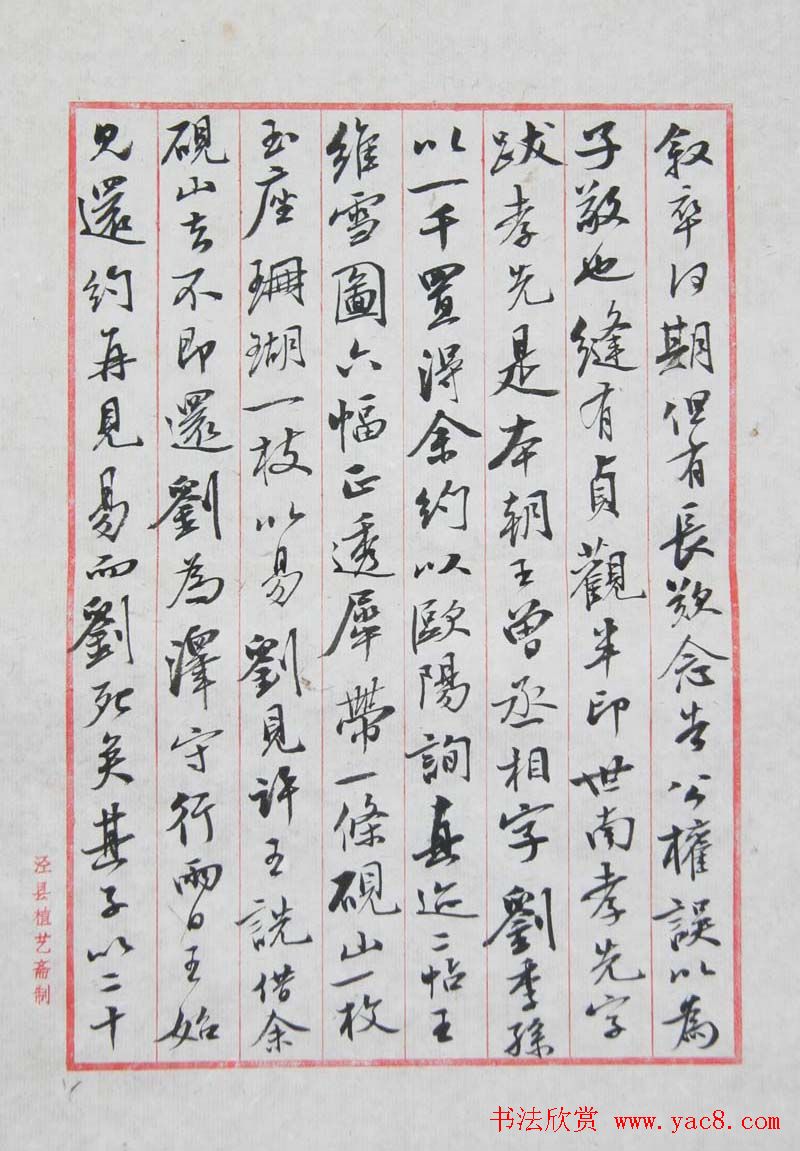 叙卒何期但有長歎念告公權誤以為
子敬也縫有貞觀半印世南孝先字
跋孝先是本朝王曾丞相字劉季孫
以一千置得余約以歐陽詢真迹二帖王
維雪圖六幅正透犀帶一條硯山一枚
玉座珊瑚一枝以易劉見許王詵借余
硯山去不即還劉為澤守行兩日王始
見還約再見易而劉死矣其子以二十
泾县植艺斋制
书法欣赏 www.yac8.com